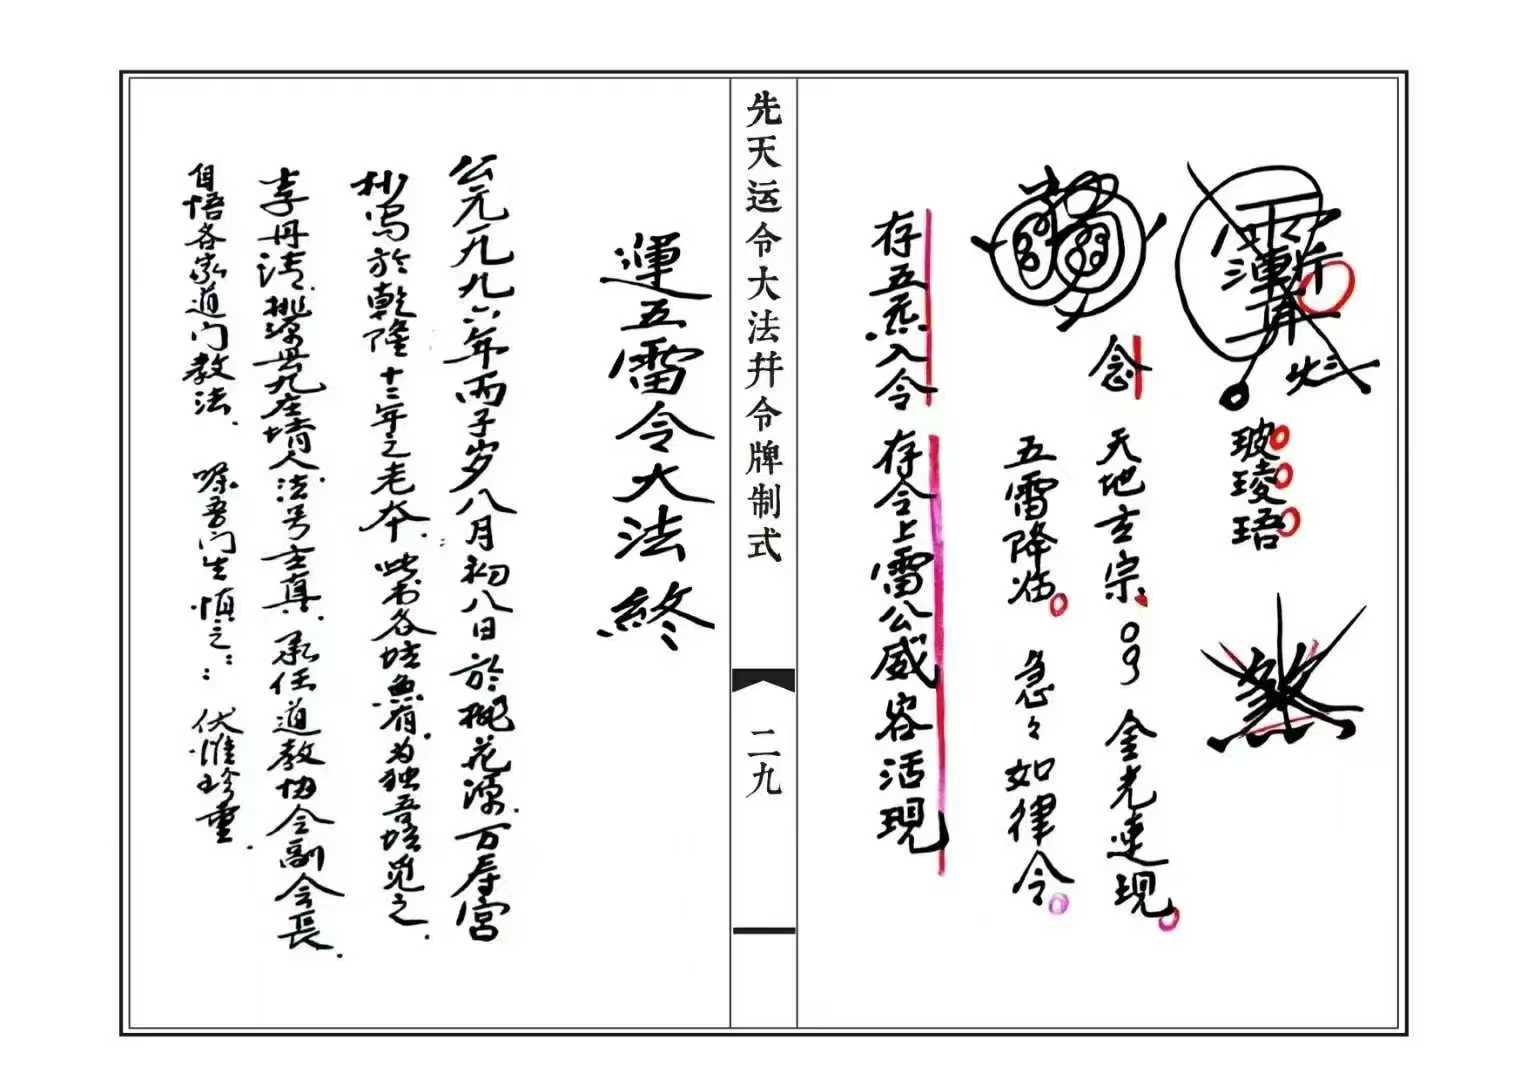 玻琼琣
念 天地玄宗 金光速現
五雷降临 急々如律令
存五炁入令 存令上雷公威容活現
先天运令大法幷令牌制式
二九
運五雷令大法終
公元一九九六年丙子岁八月初八日於桃花源万寿宮
抄写於乾隆十三年之老本 此书各坛兼有为独吾坛觅之
李丹清 桃源县九庄境人法号玄真 承任道教协会副会長
自悟各家道门教法 嘱吾门生慎之 伏惟珍重